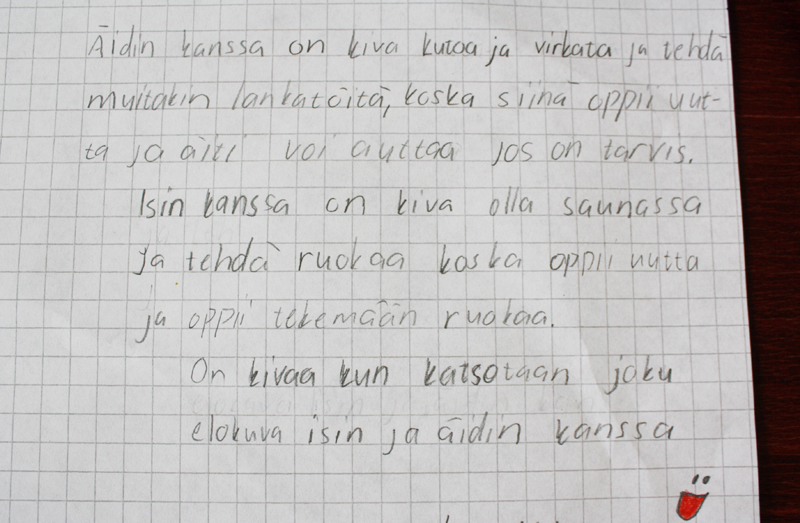 Äidin kanssa on kiva kutoa ja virkata ja tehdä
muitakin lankatöitä, koska siinä oppii uut-
ta ja äiti voi auttaa jos on tarvis.
Isin kanssa on kiva olla saunassa
ja tehdä ruokaa koska oppii uutta
ja oppii tekemään ruokaa.
On kivaa kun katsotaan joku
elokuva isin ja äidin kanssa